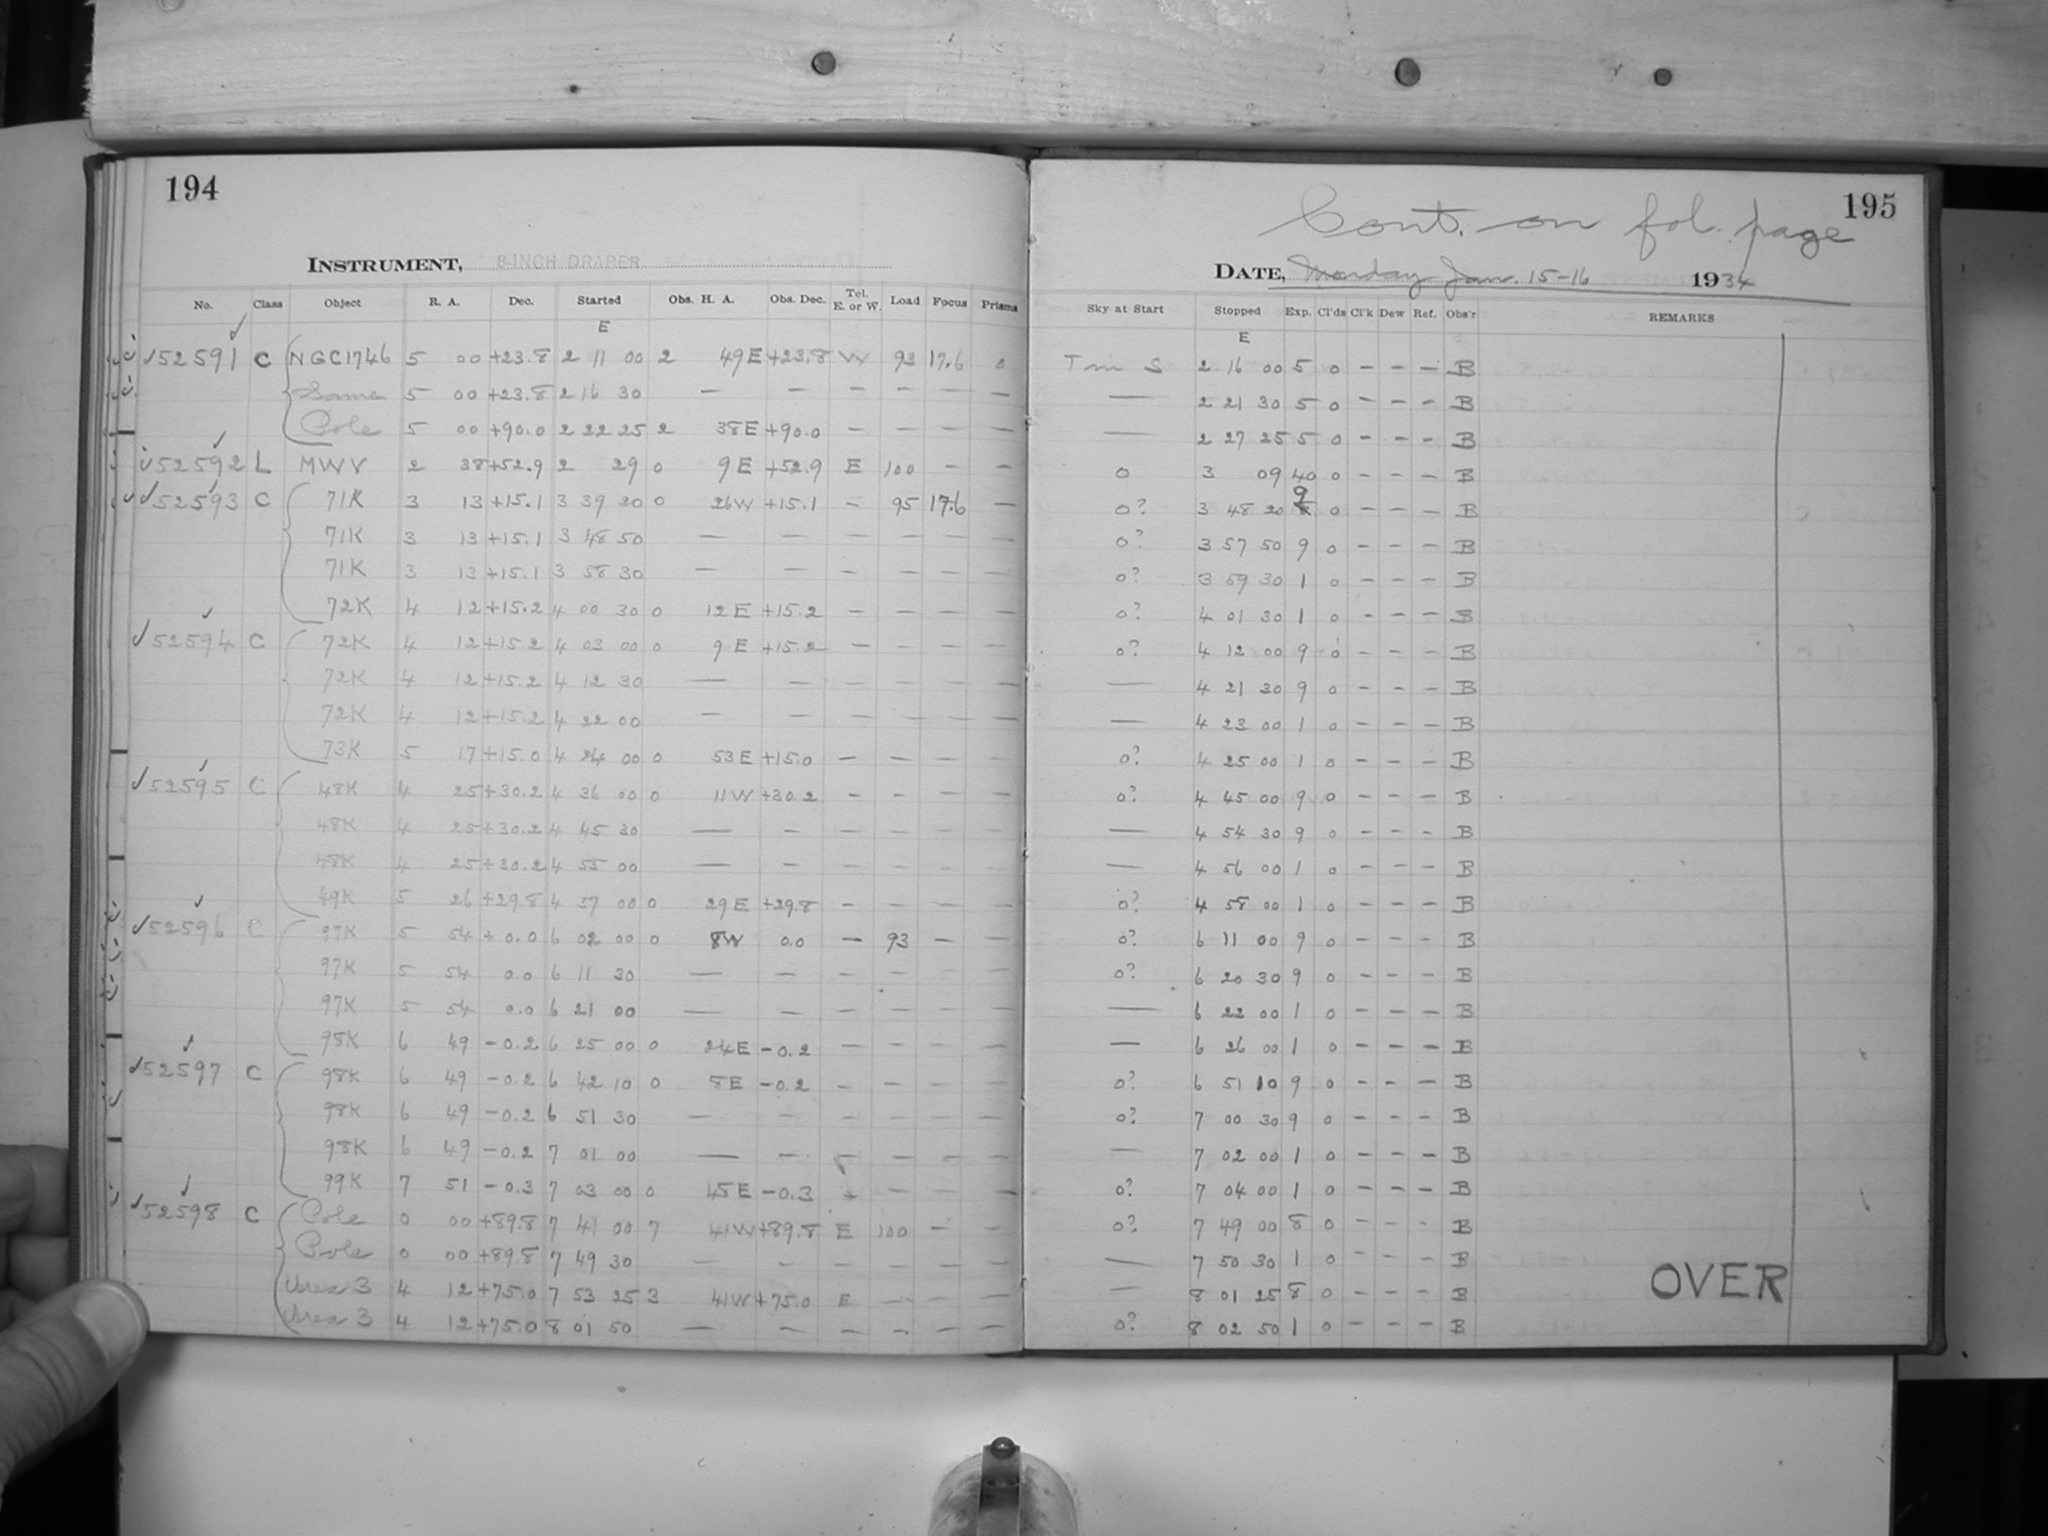 194
INSTRUMENT, 8-INCH DRAPER
No. Class Object R. A. Dec. Started Obs. H. A. Obs. Dec. Tel. E. or W. Load Focus Prisms
E
52591 C NGC1746 5 00 +23.8 2 11 00 2 49E +23.8 W 93 17.6 0
Same 5 00 +23.8 2 16 30 — — — — — —
Pole 5 00 +90.0 2 22 25 2 38E +90.0 — — — —
52592 L MWV 2 38 +52.9 2 29 0 9E +52.9 E 100 — —
52593 C 71K 3 13 +15.1 3 39 20 0 26W +15.1 — 95 17.6 —
71K 3 13 +15.1 3 48 50 — — — — — —
71K 3 13 +15.1 3 58 30 — — — — — —
72K 4 12 +15.2 4 00 30 0 12E +15.2 — — — —
52594 C 72K 4 12 +15.2 4 03 00 0 9E +15.2 — — — —
72K 4 12 +15.2 4 12 30 — — — — — —
72K 4 12 +15.2 4 22 00 — — — — — —
73K 5 17 +15.0 4 24 00 0 53E +15.0 — — — —
52595 C 48K 4 25 +30.2 4 36 00 0 11W +30.2 — — — —
48K 4 25 +30.2 4 45 30 — — — — — —
48K 4 25 +30.2 4 55 00 — — — — — —
49K 5 26 +29.8 4 57 00 0 29E +29.8 — — — —
52596 C 97K 5 54 +0.0 6 02 00 0 8W 0.0 — 93 — —
97K 5 54 0.0 6 11 30 — — — — — —
97K 5 54 0.0 6 21 00 — — — — — —
98K 6 49 -0.2 6 25 00 0 24E -0.2 — — — —
52597 C 98K 6 49 -0.2 6 42 10 0 8E -0.2 — — — —
98K 6 49 -0.2 6 51 30 — — — — — —
98K 6 49 -0.2 7 01 00 — — — — — —
99K 7 51 -0.3 7 03 00 0 45E -0.3 — — — —
52598 C Pole 0 00 +89.8 7 41 00 7 41W +89.8 E 100 — —
Pole 0 00 +89.8 7 49 30 — — — — — —
Area 3 4 12 +75.0 7 53 25 3 41W +75.0 E — — —
Area 3 4 12 +75.0 8 01 50 — — — — — —
195
Cont. on fol. page
DATE, Monday Jan. 15-16 1934
Sky at Start Stopped Exp. Cl'ds Cl'k Dew Ref. Obs'r REMARKS
E
Tm S 2 16 00 5 0 — — — B
— 2 21 30 5 0 — — — B
— 2 27 25 5 0 — — — B
0 3 09 40 0 — — — B
0? 3 48 20 9 0 — — — B
0? 3 57 50 9 0 — — — B
0? 3 59 30 1 0 — — — B
0? 4 01 30 1 0 — — — B
0? 4 12 00 9 0 — — — B
— 4 21 30 9 0 — — — B
— 4 23 00 1 0 — — — B
0? 4 25 00 1 0 — — — B
0? 4 45 00 9 0 — — — B
— 4 54 30 9 0 — — — B
— 4 56 00 1 0 — — — B
0? 4 58 00 1 0 — — — B
0? 6 11 00 9 0 — — — B
0? 6 20 30 9 0 — — — B
— 6 22 00 1 0 — — — B
— 6 26 00 1 0 — — — B
0? 6 51 10 9 0 — — — B
0? 7 00 30 9 0 — — — B
— 7 02 00 1 0 — — — B
0? 7 04 00 1 0 — — — B
0? 7 49 00 8 0 — — — B
— 7 50 30 1 0 — — — B
— 8 01 25 8 0 — — — B
0? 8 02 50 1 0 — — — B
OVER